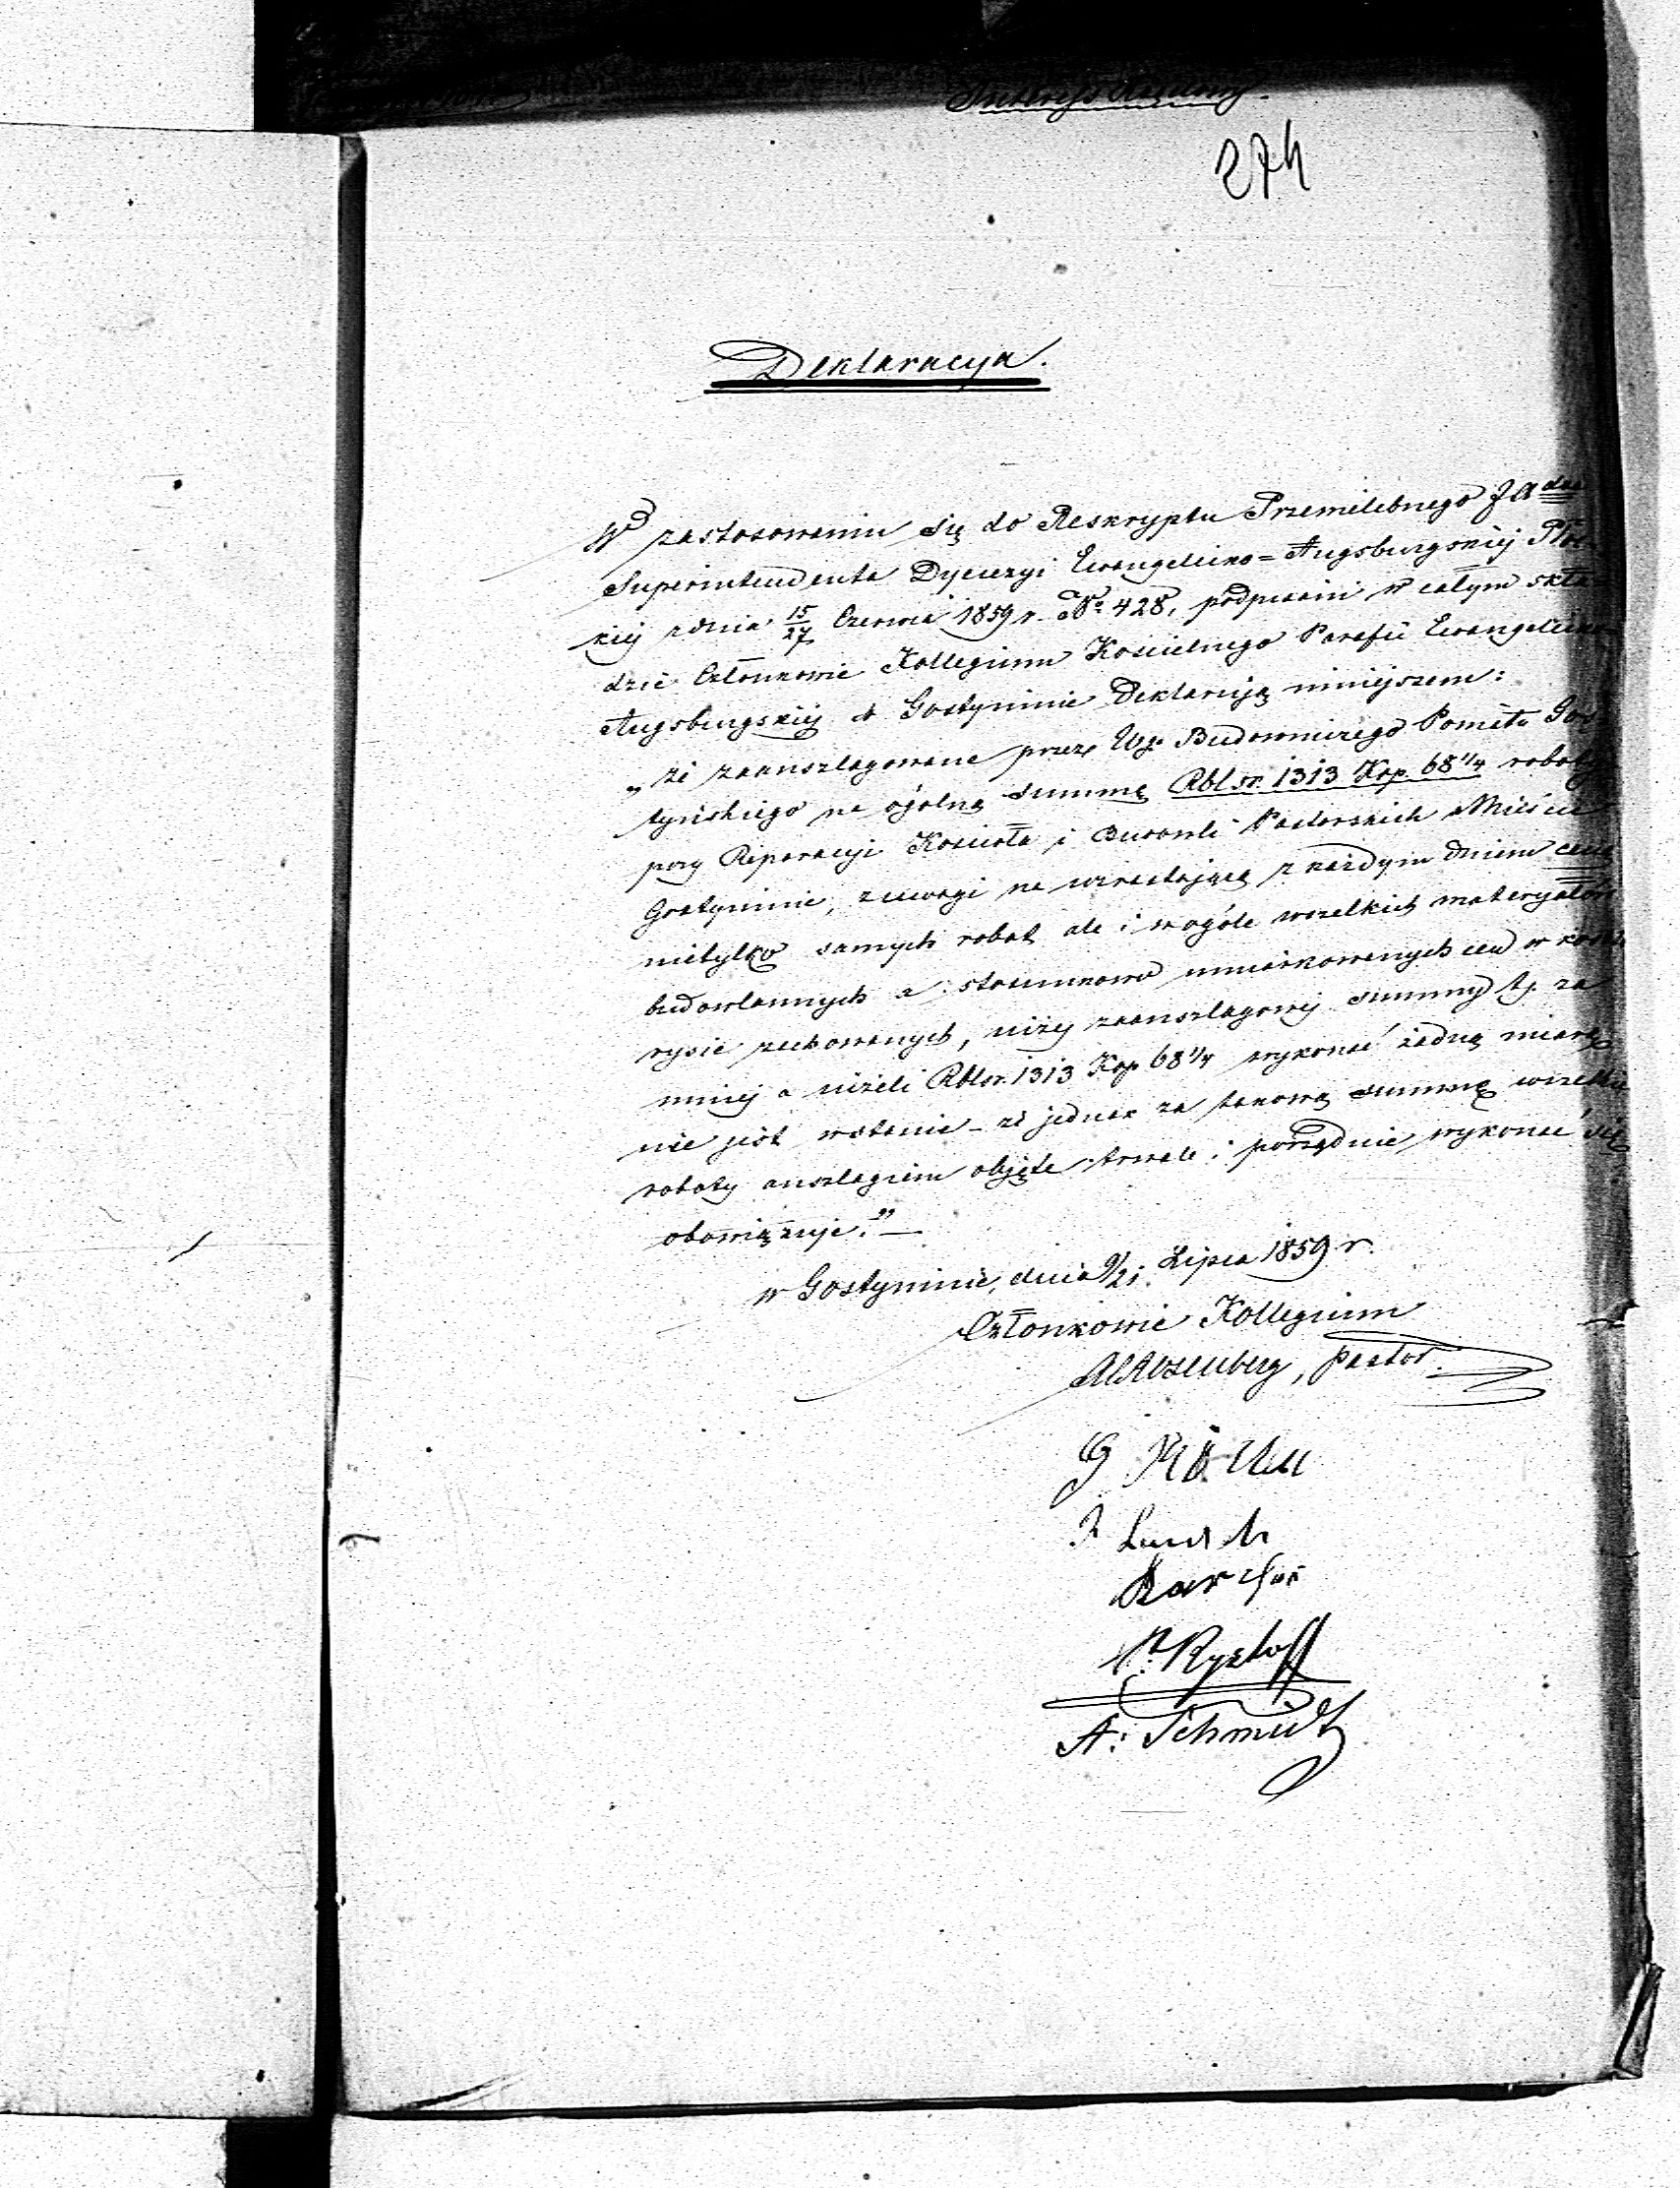 274
Deklaracya.
W zastosowaniu się do Reskryptu Przewielebnego
Superintendenta Dyecezyi Ewangelicko=Augsburgskiéj Płoc-
kiéj z dnia 15/27 Czerwca 1859 r. No 428, podpisani w całym skła-
dzie Członkowie Kollegium Kościelnego Parafii Ewangelicko
Augsburgskiéj w Gostyninie Deklarują niniejszem:
„że zaanszlagowane przez Wgo Budowniczego Powiatu Gos-
tyńskiego na ogólną summę Rbl sr. 1313 Kop. 68 1/4 roboty
przy Reparacyi Kościoła i Budowli Pastorskich w Mieście
Gostyninie, z uwagi na wzrastającą z każdym dniem cenę
nietylko samych robot ale i w ogóle wszelkich materyałów
budowlannych a stosunkowo umiarkowanych cen w kosto-
rysie zachowanych, niżéj zaanszlagowéj summy tj. za
mniéj a niżeli Rblsr. 1313 Kop 68 1/4 wykonać żadną miarą
nie jest wstanie – że jednak za takową summę wszelkie
roboty anszlagiem objęte trwale i porządnie wykonać się
obowiązuje.” —
w Gostyninie, dnia 9/21. Lipca 1859 r.
Członkowie Kollegium
pastor.
G
A: Schmidt